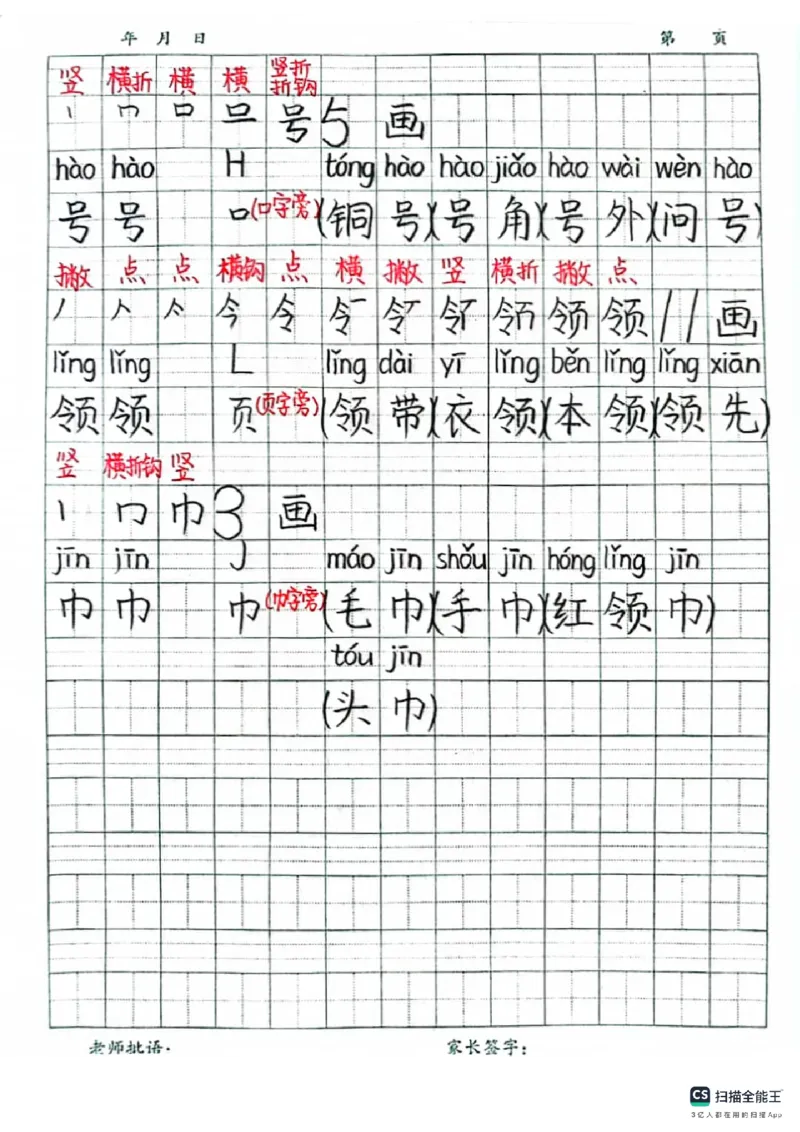 年 月 日 第 页
竖 横折 横 横 竖折折钩
丨 𠃍 口 号 5 画
hào hào H tóng hào hào jiǎo hào wài wèn hào
号 号 口(口字旁)(铜 号)(号 角)(号 外)(问 号)
撇 点 点 横钩 点 横 撇 竖 横折 撇 点
丿 人 今 令 领 11 画
lǐng lǐng L lǐng dài yī lǐng běn lǐng lǐng xiān
领 领 页(页字旁)(领 带)(衣 领)(本 领)(领 先)
竖 横折钩 竖
丨 冂 巾 3 画
jīn jīn J máo jīn shǒu jīn hóng lǐng jīn
巾 巾 巾(巾字旁)(毛 巾)(手 巾)(红 领 巾)
tóu jīn
(头 巾)
老师批语: 家长签字:
CS 扫描全能王
3亿人都在用的扫描App